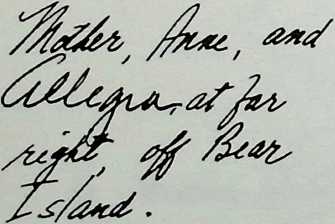 Mother, Anne, and
Allegra, at far
right, off Bear
Island.